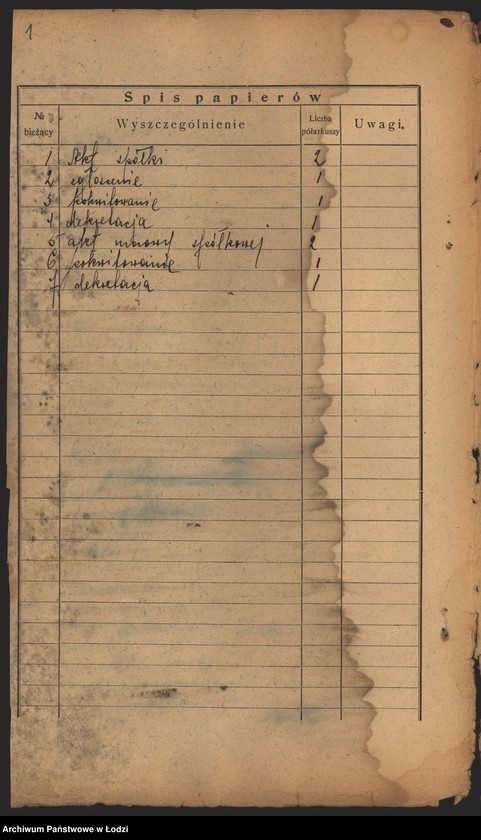 1
Spis papierów
№ bieżący Wyszczególnienie Liczba półarkuszy Uwagi.
1 Akt spółki 2
2 zgłoszenie 1
3 pokwitowanie 1
4 dekretacja 1
5 akt umowy spółkowej 2
6 pokwitowanie 1
7 dekretacja 1
Archiwum Państwowe w Łodzi